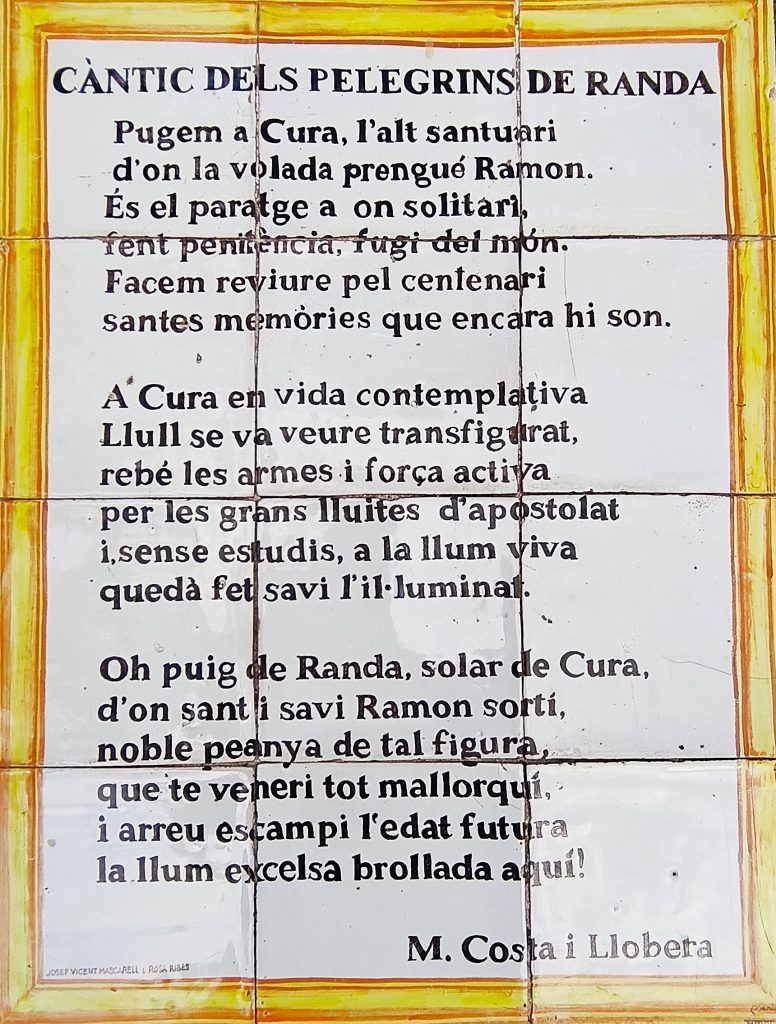 CÀNTIC DELS PELEGRINS DE RANDA
Pugem a Cura, l'alt santuari
d'on la volada prengué Ramon.
És el paratge a on solitari,
fent penitència, fugi del món.
Facem reviure pel centenari
santes memòries que encara hi son.
A Cura en vida contemplativa
Llull se va veure transfigurat,
rebé les armes i força activa
per les grans lluites d'apostolat
i,sense estudis, a la llum viva
quedà fet savi l'il·luminat.
Oh puig de Randa, solar de Cura,
d'on sant i savi Ramon sortí,
noble peanya de tal figura,
que te veneri tot mallorquí,
i arreu escampi l'edat futura
la llum excelsa brollada aquí!
M. Costa i Llobera
JOSEP VICENT MASCARELL i ROSA RIBES